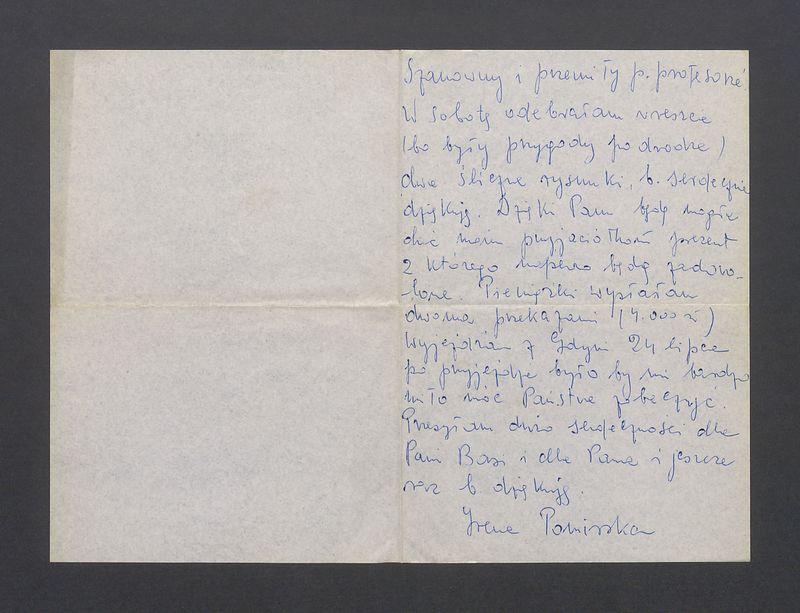 Szanowny i przemiły p. profesorze!
W sobotę odebrałam wreszcie
(bo były przygody po drodze)
dwa śliczne rysunki, b. serdecznie
dziękuję. Dzięki Panu będę mogła
dać moim przyjaciółkom prezent
z którego napewno będą zadowo-
lone. Pieniążki wysłałam
dwoma przekazami (4.000 zł)
Wyjeżdżam z Gdyni 24 lipca
po przyjeździe było by mi bardzo
miło móc Państwa zobaczyć.
Przesyłam dużo serdeczności dla
Pani Basi i dla Pana i jeszcze
raz b. dziękuję.
Irena